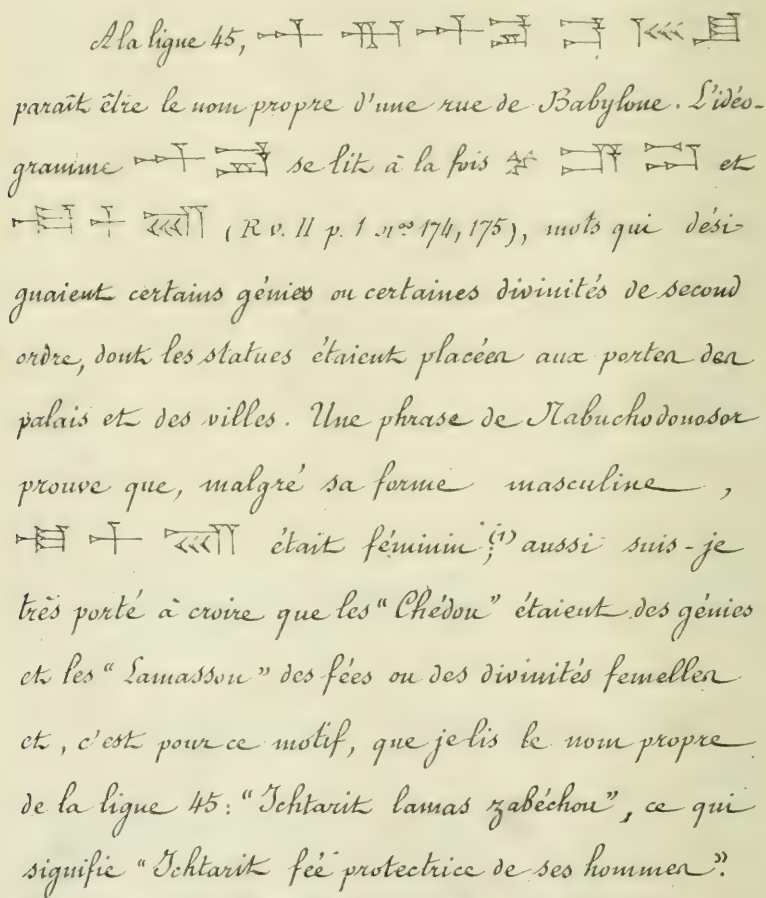 A la ligne 45,
paraît être le nom propre d'une rue de Babylone. L'idéo-
gramme se lit à la fois et
(R v. II p. 1 nos 174, 175), mots qui dési-
gnaient certains génies ou certaines divinités de second
ordre, dont les statues étaient placées aux portes des
palais et des villes. Une phrase de Nabuchodonosor
prouve que, malgré sa forme masculine,
était féminin;(1) aussi suis-je
très porté à croire que les "Chédou" étaient des génies
et les "Lamassou" des fées ou des divinités femelles
et, c'est pour ce motif, que je lis le nom propre
de la ligne 45: "Ichtarit lamas zabéchou", ce qui
signifie "Ichtarit feé protectrice de ses hommes".